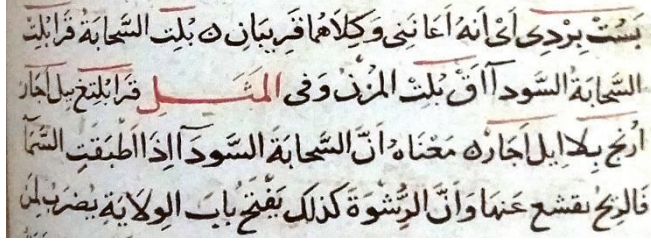 بَسُتْ بِرْدِى اَىْ اَنَهُ اَعَانَنِى وَكِلَاهُمَا قَرِيبَانِ ۞ بُلِتْ السَّحَابَةُ قَرَابُلِتْ
السَّحَابَةُ السَّوْدآا اقْ بُلِتْ المُزْنُ وَفِى المَثَـلِ قَرَابُلِتِغْ يِيل اَجَار
ارْنج بِلَا ايل اَجَارْ ۞ مَعْنَاهُ اَنَّ السَّحَابَةَ السَّودَآ اِذَا اَطْبَقَتِ السَّمآ
فَالرِيْحُ تقشع عَنهَا وَاَنَّ الرِّشْوَةَ كَذلكَ يَفْتَحُ بابَ الوِلَايَةِ يُضرَبُ لِمَن